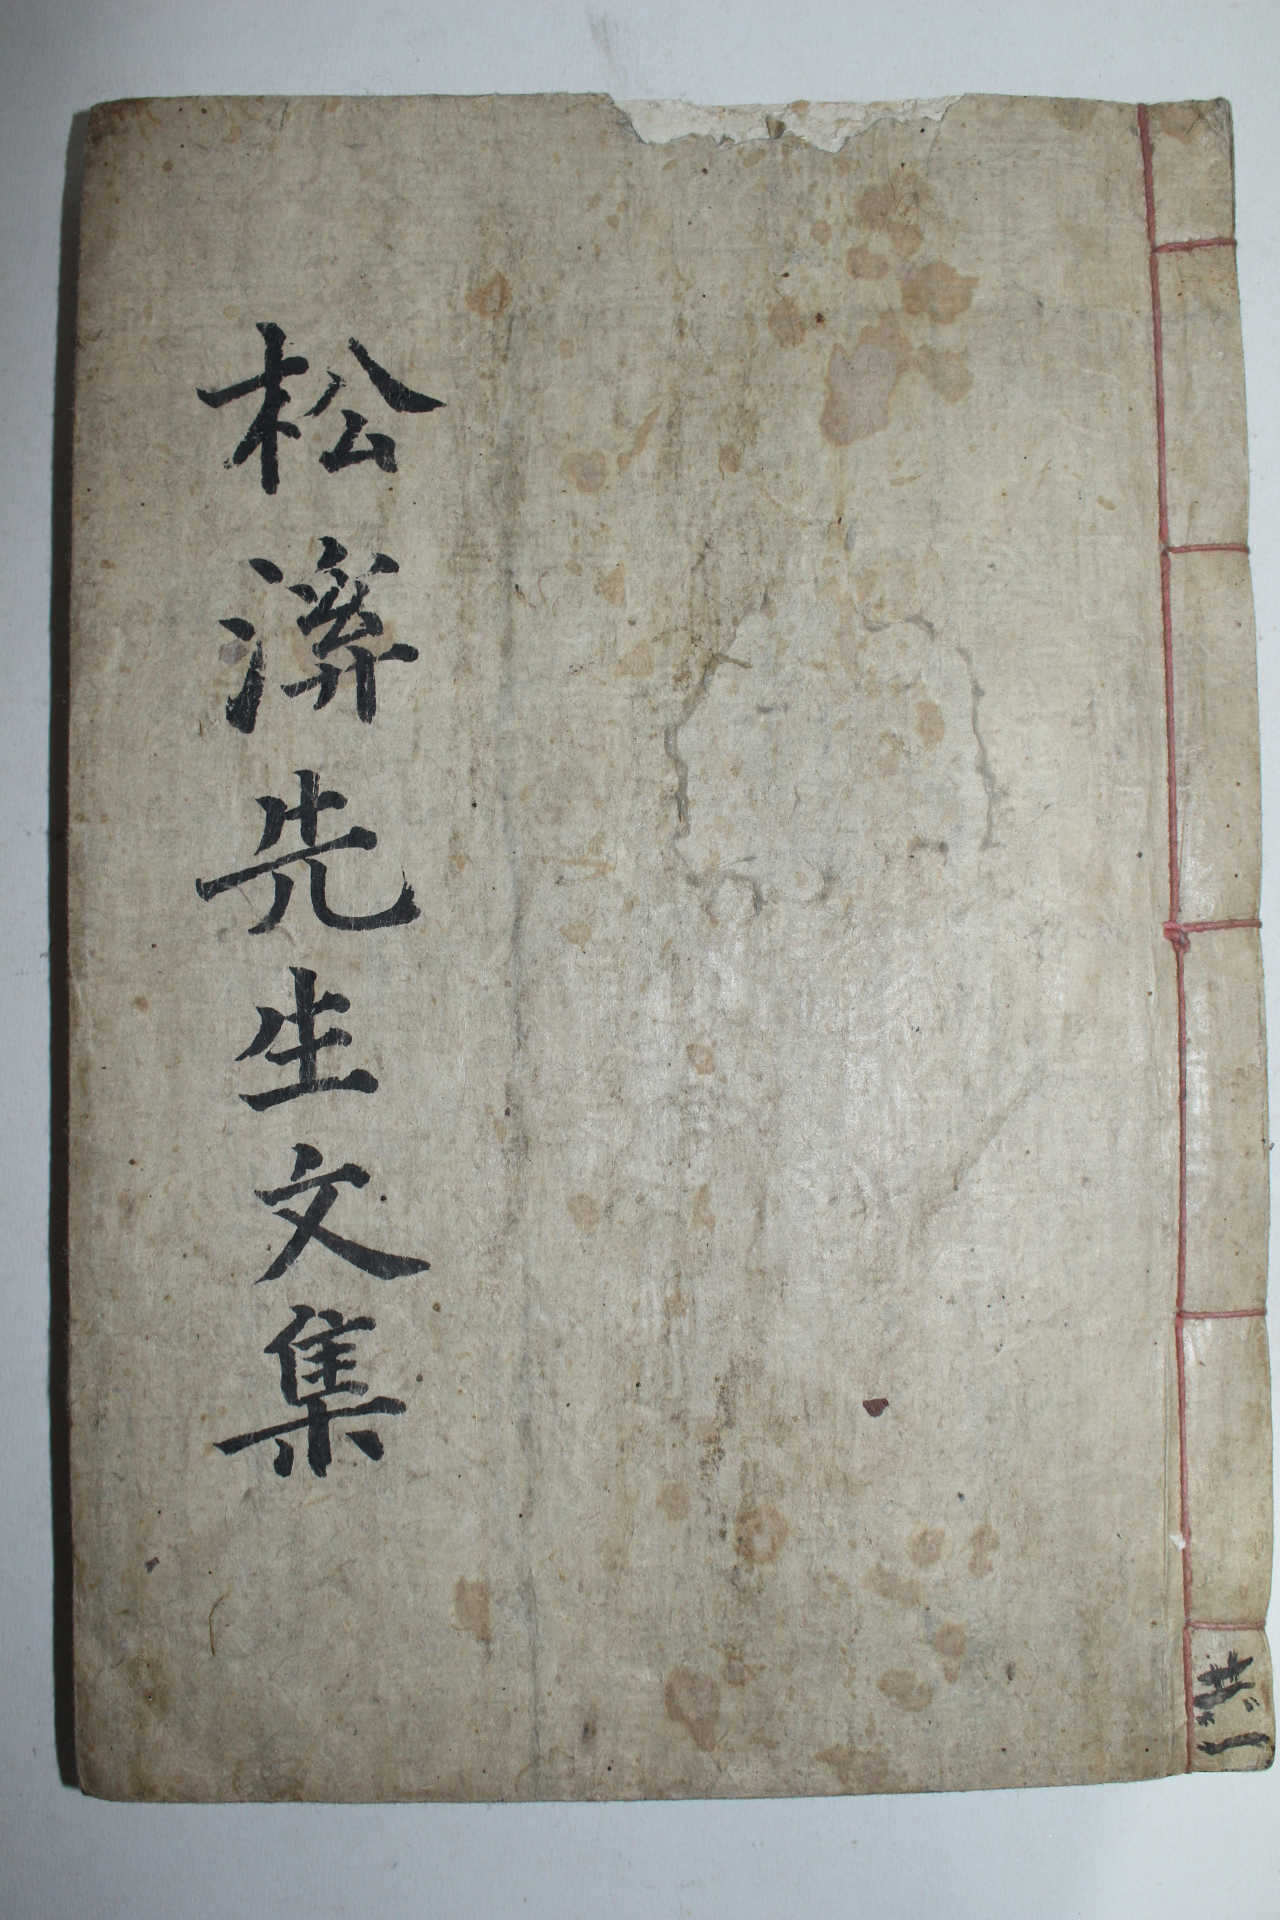 松先生文集
共一